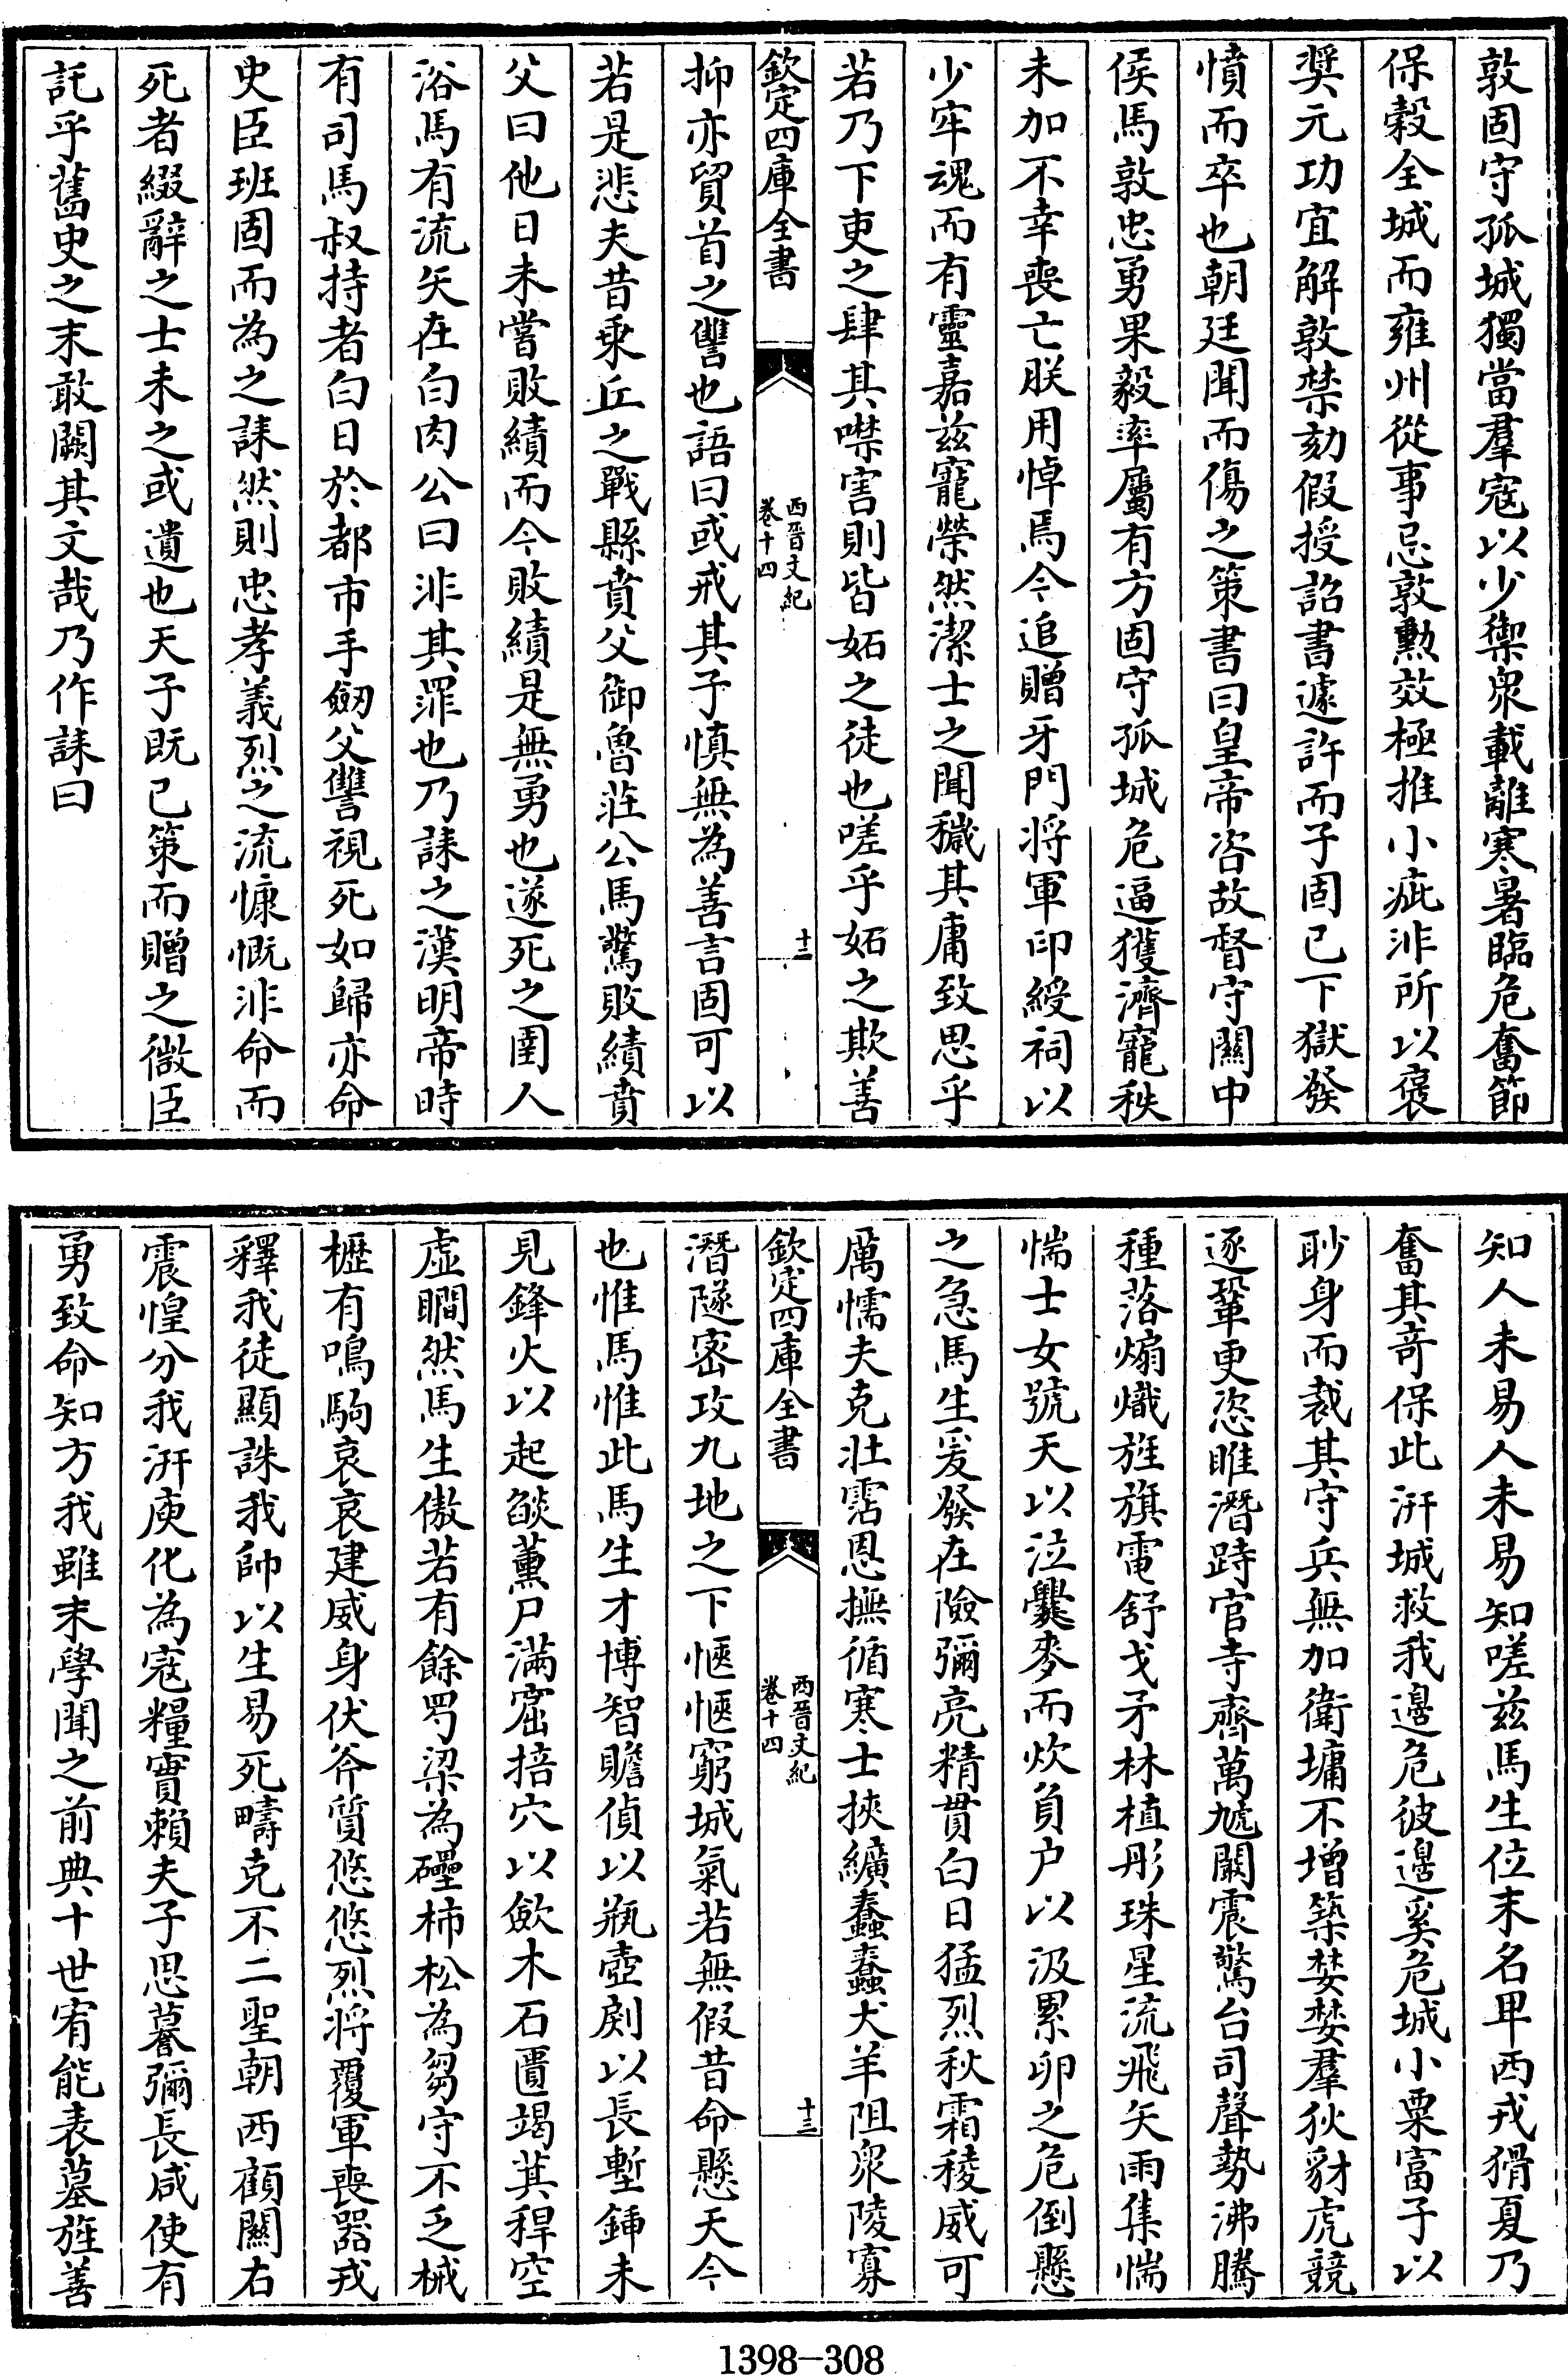 敦固守孤城獨當羣寇以少禦衆載離寒暑臨危奮節
保榖全城而雍州從事忌敦勲效極推小疵非所以褒
奨元功宜解敦禁劾假授詔書遽許而子固已下獄發
憤而卒也朝廷聞而傷之策書曰皇帝咨故督守關中
侯馬敦忠勇果毅率屬有方固守孤城危逼獲濟寵秩
未加不幸喪亡朕用悼焉今追贈牙門将軍印綬祠以
少牢魂而有靈嘉兹寵榮然潔士之聞穢其庸致思乎
若乃下吏之肆其噤害則皆妬之徒也嗟乎妬之欺善
欽定四庫全書
西晉文紀
卷十四
十二
抑亦貿首之讐也語曰或戒其子慎無為善言固可以
若是悲夫昔乗丘之戰縣賁父御魯莊公馬驚敗績賁
父曰他日未嘗敗績而今敗績是無勇也遂死之圉人
浴馬有流矢在白肉公曰非其罪也乃誄之漢明帝時
有司馬叔持者白日於都市手劒父讐視死如歸亦命
史臣班固而為之誄然則忠孝義烈之流慷慨非命而
死者綴辭之士未之或遺也天子既已策而贈之微臣
託乎舊史之末敢闕其文哉乃作誄曰
知人未易人未易知嗟兹馬生位末名卑西戎猾夏乃
奮其奇保此汧城救我邊危彼邊奚危城小粟富子以
眇身而裁其守兵無加衛墉不增築婪婪羣狄豺虎競
逐鞏更恣睢潛跱官寺齊萬虓闞震驚台司聲勢沸騰
種落煽熾旌旗電舒戈矛林植彤珠星流飛矢雨集惴
惴士女號天以泣爨麥而炊負户以汲累卵之危倒懸
之急馬生爰發在險彌亮精貫白日猛烈秋霜稜威可
厲懦夫克壯霑恩撫循寒士挾纊蠢蠢犬羊阻衆陵寡
欽定四庫全書
西晉文紀
卷十四
十三
潛隧密攻九地之下愜愜窮城氣若無假昔命懸天今
也惟馬惟此馬生才博智贍偵以瓶壺劂以長塹鍤未
見鋒火以起燄薰尸滿窟掊穴以斂木石匱竭萁稈空
虚瞯然馬生傲若有餘罥梁為礧柿松為芻守不乏械
櫪有鳴駒哀哀建威身伏斧質悠悠烈将覆軍喪器戎
釋我徒顯誅我帥以生易死疇克不二聖朝西顧關右
震惶分我汧庾化為寇糧實賴夫子思謩彌長咸使有
勇致命知方我雖末學聞之前典十世宥能表墓旌善
1398-308